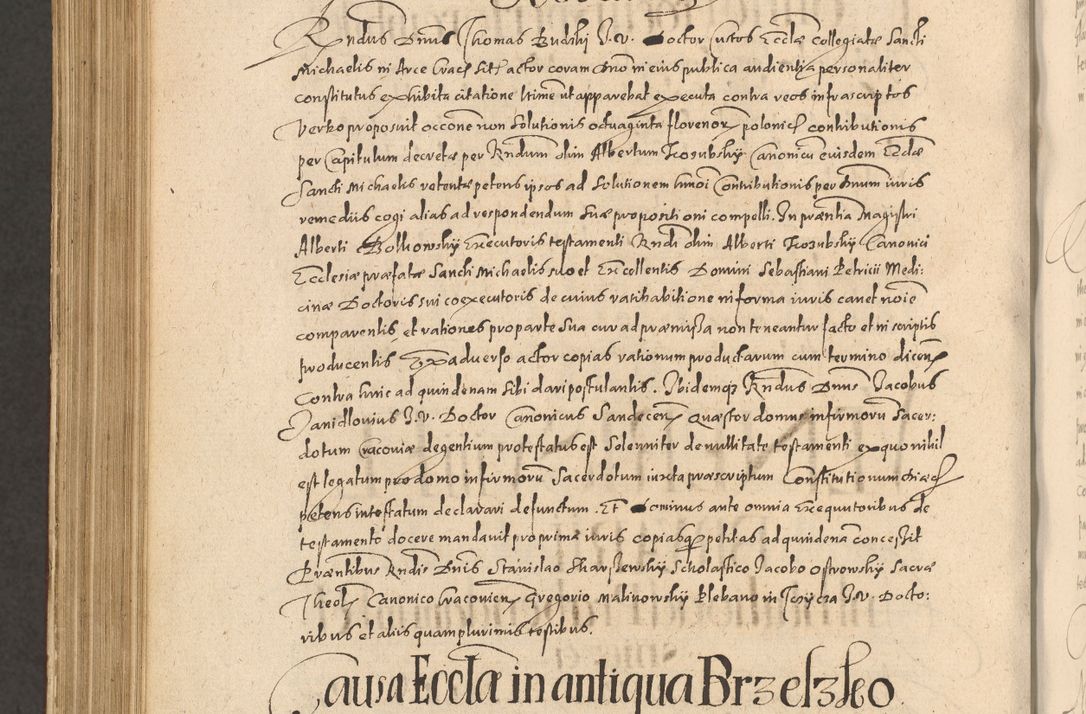 Rndus Dnus Thomas Rudski J. V. Doctor Custos Ecclæ collegiatæ Sancti
Michaelis in Arce Crac: sitæ actor coram Dno in eius publica audientia personaliter
constitutus exhibita citatione ltime ut apparebat executa contra reos infrascriptos
verbo proposuit occone non Solutionis octuaginta florenor polonic contributionis
per Capitulum decretæ per Rndum olim Albertum Kosubsky Canonicu eiusdem Ecclæ
Sancti Michaelis retentæ petens ipsos ad Solutionem hmoi Contributionis per Dnum iuris
remediis cogi alias ad respondendum suæ propositioni compelli. In præntia Magistri
Alberti Executoris testamenti Rndi olim Alberti Kosubsky Canonici
Ecclesiæ præfatæ Sancti Michaelis suo et Excellentis Domini Sebastiani Petricii Medi:
cinæ Doctoris sui coexecutoris de cuius ratihabitione in forma iuris cauet noie
comparentis, et rationes pro parte sua cur ad præmissa non teneantur facto et in scriptis
producentis Ex adverso actor copias rationum productarum cum termino dicen
Contra hinc ad quindenam sibi dari postulantis. Ibidemq Rndus Dnus Jacobus
Janidlovius J. V. Doctor Canonicus Sandecen Quæstor domus infirmoru Sacer:
dotum Cracoviæ degentium protestatus est Solenniter de nullitate testamenti ex quo nihil
est legatum pro domo infirmoru Sacerdotum iuxta præscriptum Constitutionum
petens intestatum declarari defunctum. Et Dominus ante omnia Exequutoribus de
testamento docere mandavit pro prima iuris copiasq petitas ad quindena concessit
Præntibus Rndis Dnis Stanislao Skarszewsky Scholastico Jacobo Ostrowsky Sacræ
Theol Canonico Cracovien Gregorio Malinowsky Plebano in J. V. Docto:
ribus et aliis quam plurimis testibus.
Causa Ecclæ in antiqua Brzelzko